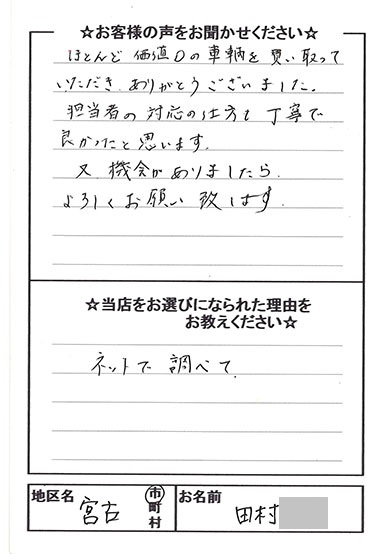 ☆お客様の声をお聞かせください☆
ほとんど価値0の車輌を買い取って
いただき、ありがとうございました。
担当者の対応の仕方も丁寧で
良かったと思います。
又、機会がありましたら
よろしくお願い致します。
☆当店をお選びになられた理由を
お教えください☆
ネットで調べて。
地区名 宮古 市町村 お名前 田村